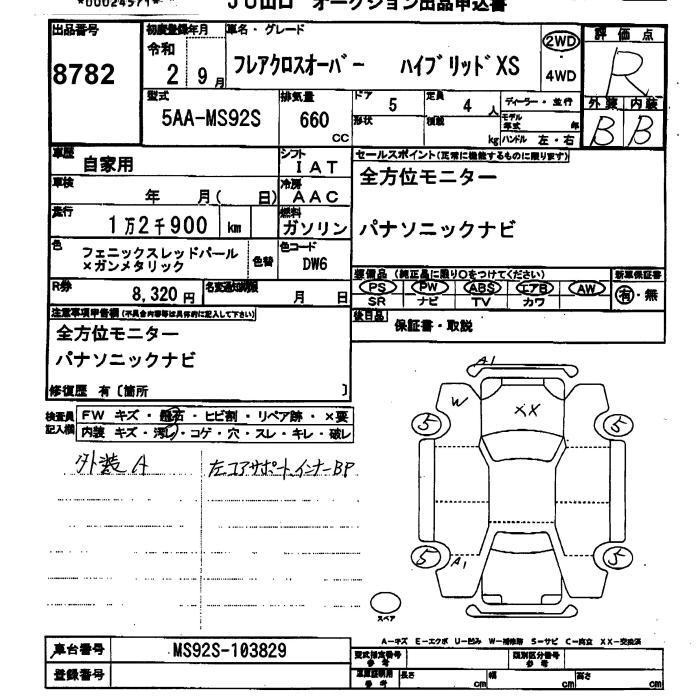 *00024571* JU山口 オークション出品申込書
出品番号 初度登録年月 車名・グレード 評価点
8782 令和 2 9月 フレアクロスオーバー ハイブリッドXS 2WD・4WD R
型式 排気量 ドア 5 定員 4人 ディーラー・並行 外装 内装
5AA-MS92S 660cc 形状 積載 kg モデル年式 年 ハンドル 左・右 B B
車歴 自家用 シフト IAT セールスポイント(正常に機能するものに限ります)
車検 年 月( 日) 冷房 AAC 全方位モニター
走行 1万2千900 km 燃料 ガソリン パナソニックナビ
色 フェニックスレッドパール 色替 色コード
×ガンメタリック DW6
装備品(純正品に限り○をつけてください) 新車保証書
R券 8,320円 名変通知期限 月 日 PS PW ABS エアB AW 有・無
SR ナビ TV カワ
注意事項申告欄(不具合内容等は具体的に記入して下さい) 後日品 保証書・取説
全方位モニター
パナソニックナビ
修復歴 有〔箇所 〕
検査員記入欄 FW キズ・飛石・ヒビ割・リペア跡・×要
内装 キズ・汚れ・コゲ・穴・スレ・キレ・破レ
外装A 左コアサポート、インナーBP
A1
W XX
5 5
5 A1 5
スペア
A-キズ E-エクボ U-凹み W-補修跡 S-サビ C-腐食 XX-交換済
車台番号 MS92S-103829 型式指定番号 参考 類別区分番号 参考
登録番号 車庫証明用 参考 長さ cm 幅 cm 高さ cm